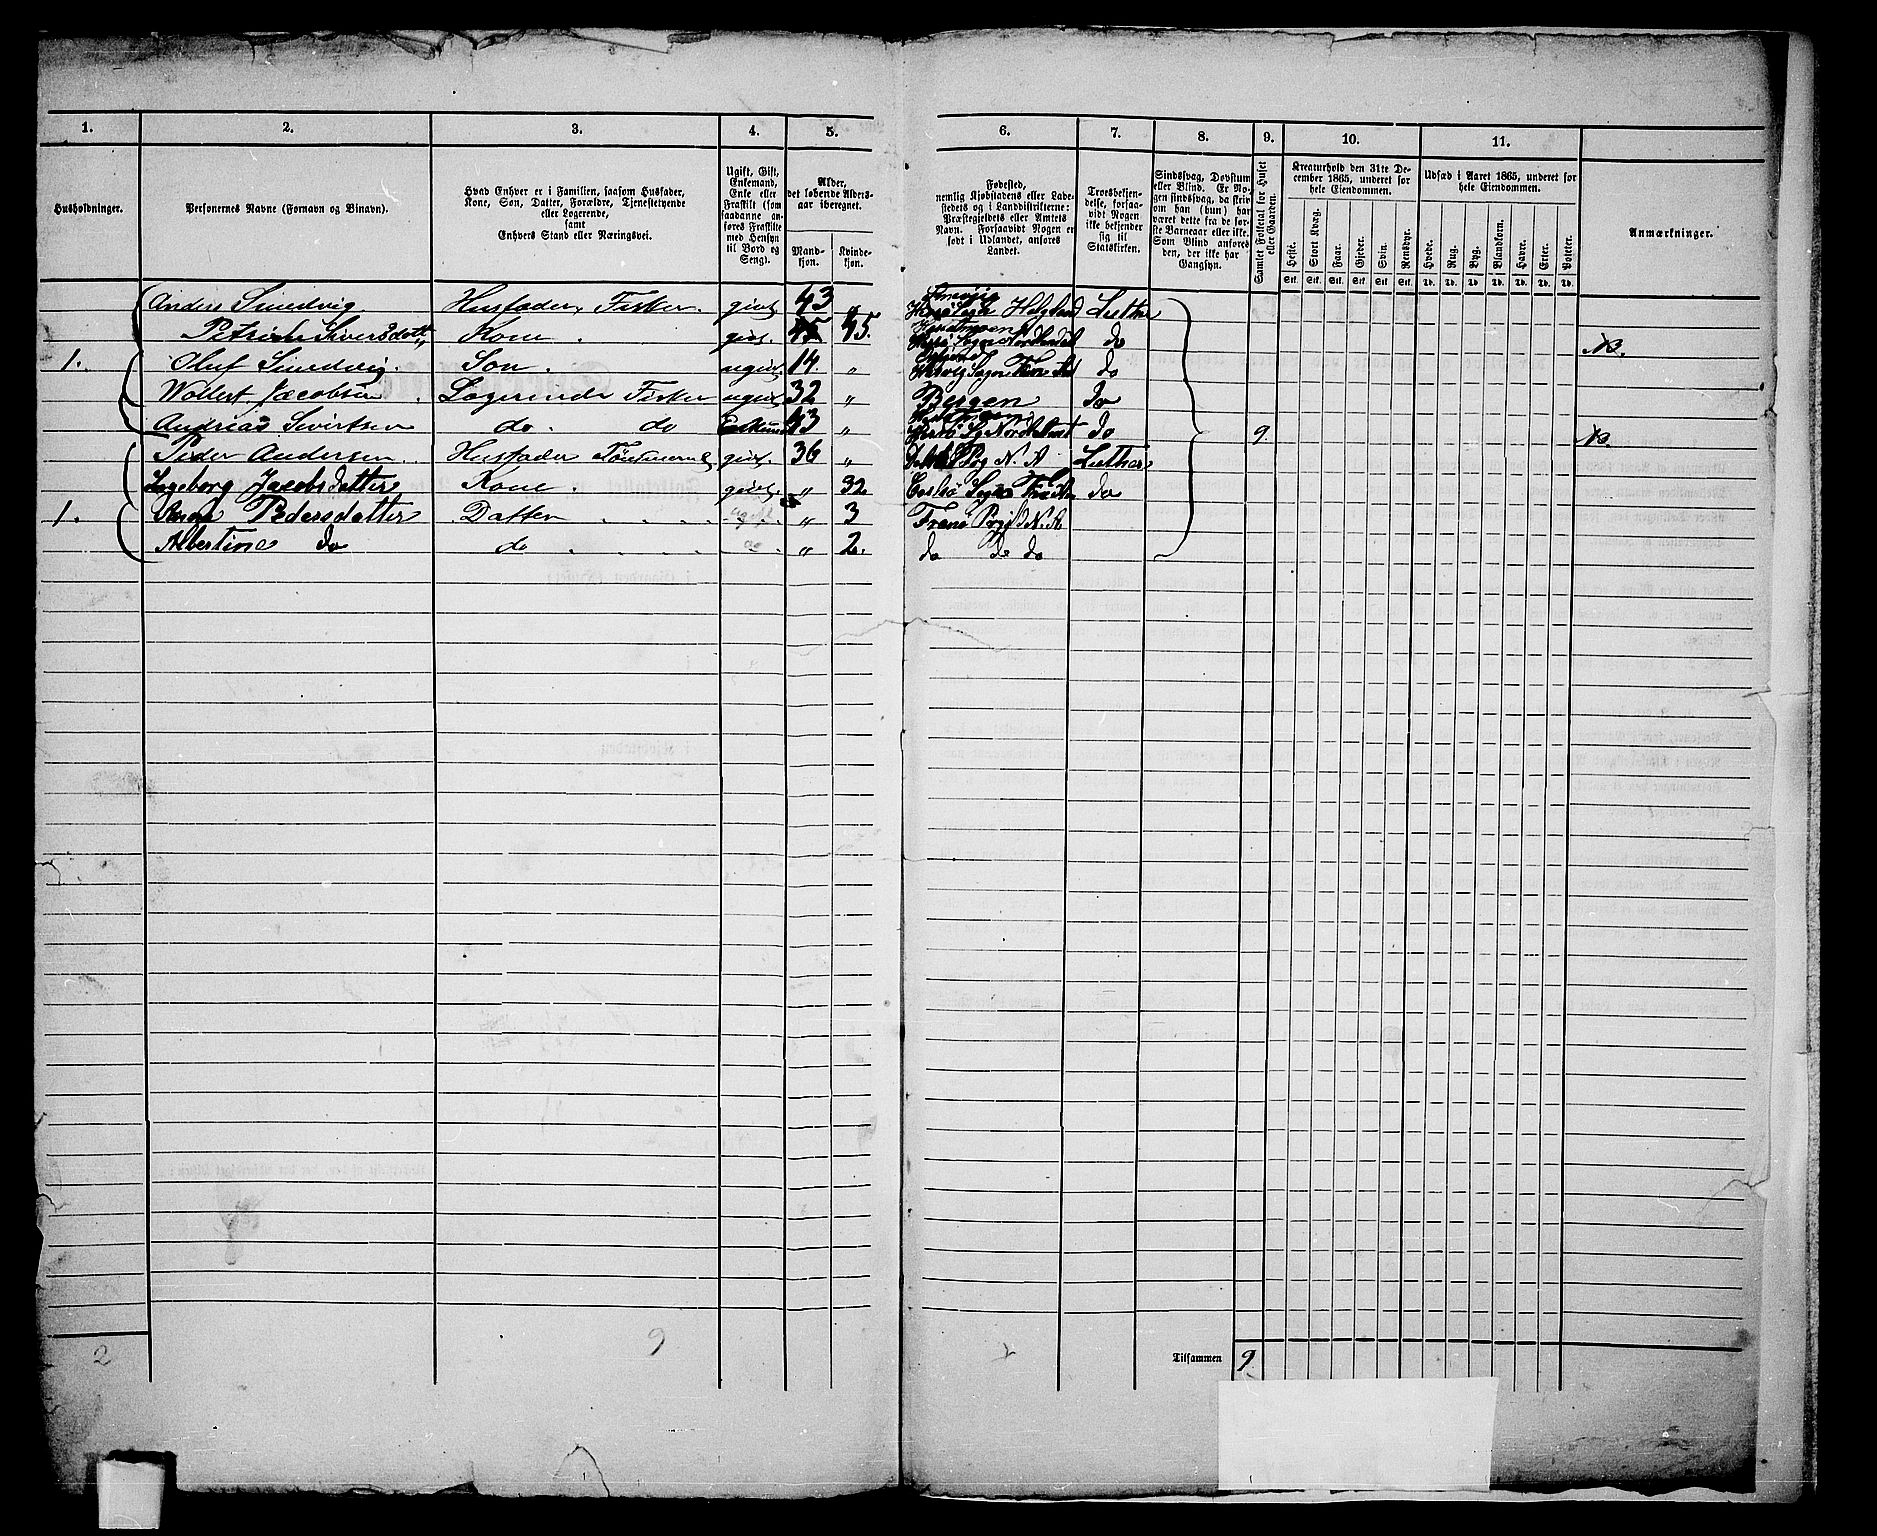 1. 2. 3. 4. 5. 6. 7. 8. 9. 10. 11.
Husholdninger.
Personernes Navne (Fornavn og Binavn).
Hvad Enhver er i Familien, saasom Husfader,
Kone, Søn, Datter, Forældre, Tjenestetyende
eller Logerende,
samt
Enhvers Stand eller Næringsvei.
Ugift, Gift,
Enkemand,
Enke eller
Fraskilt (som
saadanne an-
føres Fraskilte
med Hensyn
til Bord og
Seng).
Alder,
det løbende Alders-
aar iberegnet.
Mand-
kjøn.
Kvinde-
kjøn.
Fødested,
nemlig Kjøbstadens eller Lade-
stedets og i Landdistrikterne:
Præstegjeldets eller Amtets
Navn. Forsaavidt Nogen er
født i Udlandet, anføres
Landet.
Troesbekjen-
delse, forsaa-
vidt Nogen
ikke bekjender
sig til
Statskirken.
Sindssvag, Døvstum
eller Blind. Er No-
gen sindssvag, da skriv
om han (hun) har
været dette fra de før-
ste Barneaar eller ikke.
Som Blind anføres
den, der ikke har
Gangsyn.
Samlet Folketal for Huset
eller Gaarden.
Kreaturhold den 31te De-
cember 1865, underet for
hele Eiendommen.
Heste. Stort Kvæg. Faar. Gjeder. Svin. Rensdyr.
Stk. Stk. Stk. Stk. Stk. Stk.
Udsæd i Aaret 1865, underet for
hele Eiendommen.
Hvede. Rug. Byg. Blandkorn. Havre. Erter. Poteter.
Td. Td. Td. Td. Td. Td. Td.
Anmærkninger.
Anders Sundvig Husfader, Fisker. givt 43 „ Helgeland Luther
Petrine Siversdatt„ Kone. givt. 45. do NB.
1. Oluf Sundvig. Søn. ugivt. 14. „ do
Wollert Jacobsen Logerende Fisker ugivt 32 „ Bergen do
Andreas Sivertsen do. do 43 „ do 9. NB
Peder Andersen Husfader givt. 36 „ N. A Luther
Ingeborg Jacobsdatter Kone. givt. „ 32. do
1. Pedersdatter Datter ugivt „ 3 N. A
Albertine do do do „ 2. do do do
2
9
Tilsammen 9.